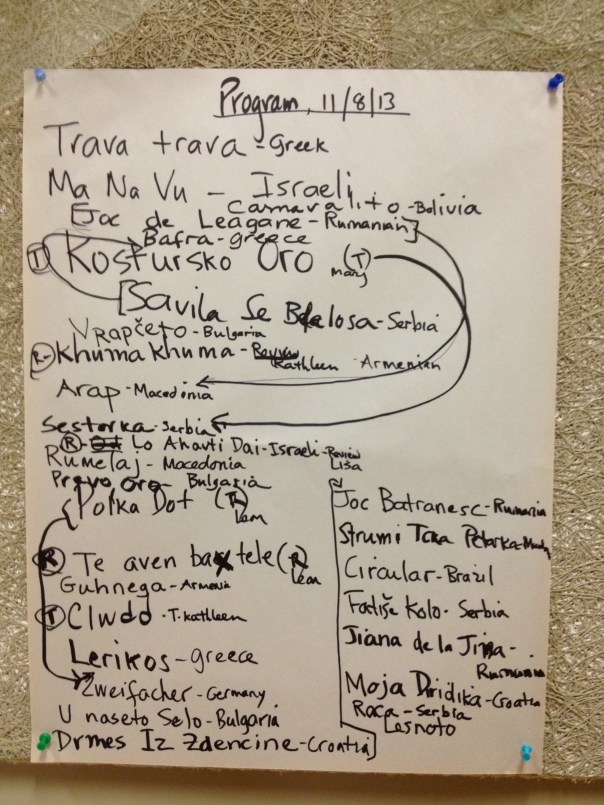 Program, 11/8/13
Trava trava - Greek
Ma Na Vu - Israeli
Carnavalito - Bolivia
[Joc de Leagane - Rumanian]
Bafra - greece
(T) Kostursko Oro (T)
mary
[Savila Se Bela losa - Serbia
Vrapčeto - Bulgaria
(R-) Khuma Khuma - Kathleen Armenian
Arap - Macedonia
Sestorka - Serbia
(R) - Lo Ahavti Dai - Israeli - Review
Lisa
Rumelaj - Macedonia
Pravo Oro - Bulgaria
Polka Dot (T)
Lem
(R) Te aven baxtele (R)
Lem
Guhnega - Armenia
(T) Clwdo - T. Kathleen
Lerikos - greece
Zweifacher - Germany
U naseto Selo - Bulgaria
Drmes Iz Zdencine - Croatia]
Joc Batranesc - Rumania
Strumi Tora Petarka
Circular - Brazil
Fatiše Kolo - Serbia
Jiana de la Jina -
Rumania
Moja Diridika - Croatia
Raca - Serbia
Lesnoto